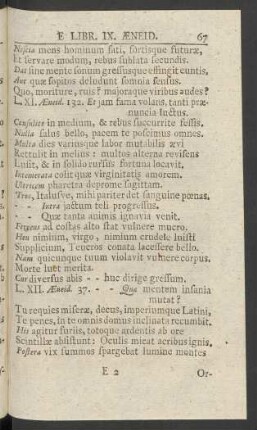 E LIBR. IX. ÆNEID. 67
Nescia mens hominum fati, sortisque futuræ,
Et servare modum, rebus sublata secundis.
Dat sine mente sonum gressusque effingit euntis,
Aut quæ sopitos deludunt somnia sensus.
Quo, moriture, ruis? majoraque viribus audes?
L. XI. Æneid. 132. Et jam fama volans, tanti præ-
nuncia luctus.
Consulite in medium, & rebus succurrite fessis.
Nulla salus bello, pacem te poscimus omnes.
Multa dies variusque labor mutabilis ævi
Rettulit in melius: multos alterna revisens
Lusit, & in solido rursus fortuna locavit.
Intemerata colit quæ virginitatis amorem.
Ultricem pharetra deprome sagittam.
Tros, Italusve, mihi pariter det sanguine pœnas.
- - Intra jactum teli progressus.
- - Quæ tanta animis ignavia venit.
Frigens ad costas alto stat vulnere mucro.
Heu nimium, virgo, nimium crudele luisti
Supplicium, Teucros conata lacessere bello.
Nam quicunque tuum violavit vulnere corpus.
Morte luet merita.
Cur diversus abis - - huc dirige gressum.
L. XII. Æneid. 37. - - Qua mentem insania
mutat?
Tu requies miseræ, decus, imperiumque Latini,
Te penes, in te omnis domus inclinata recumbit.
His agitur furiis, totoque ardentis ab ore
Scintillæ absistunt: Oculis micat acribus ignis.
Postera vix summos spargebat lumine montes
E 2 Or-